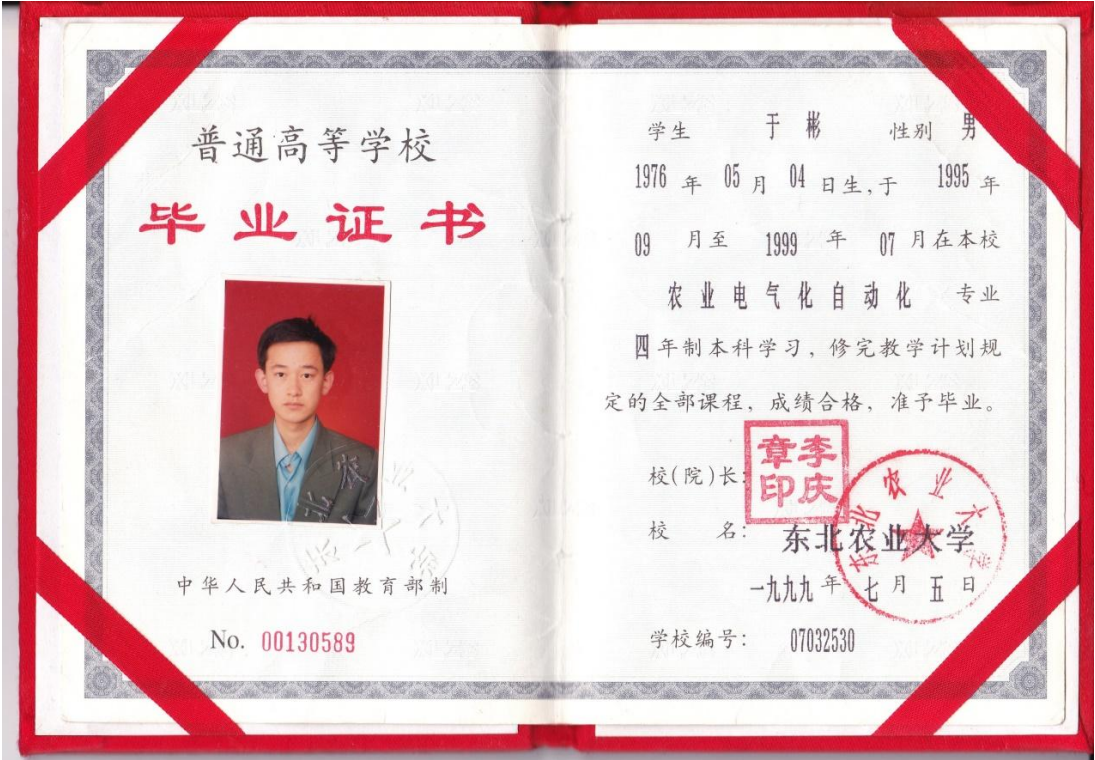 普通高等学校
毕业证书
中华人民共和国教育部制
No. 00130589
学生 于彬 性别 男
1976 年 05 月 04 日生,于 1995 年
09 月至 1999 年 07 月在本校
农业电气化自动化 专业
四年制本科学习，修完教学计划规
定的全部课程，成绩合格，准予毕业。
校(院)长:
李庆章印
校 名: 东北农业大学
东北农业大学
一九九九年七月五日
学校编号: 07032530